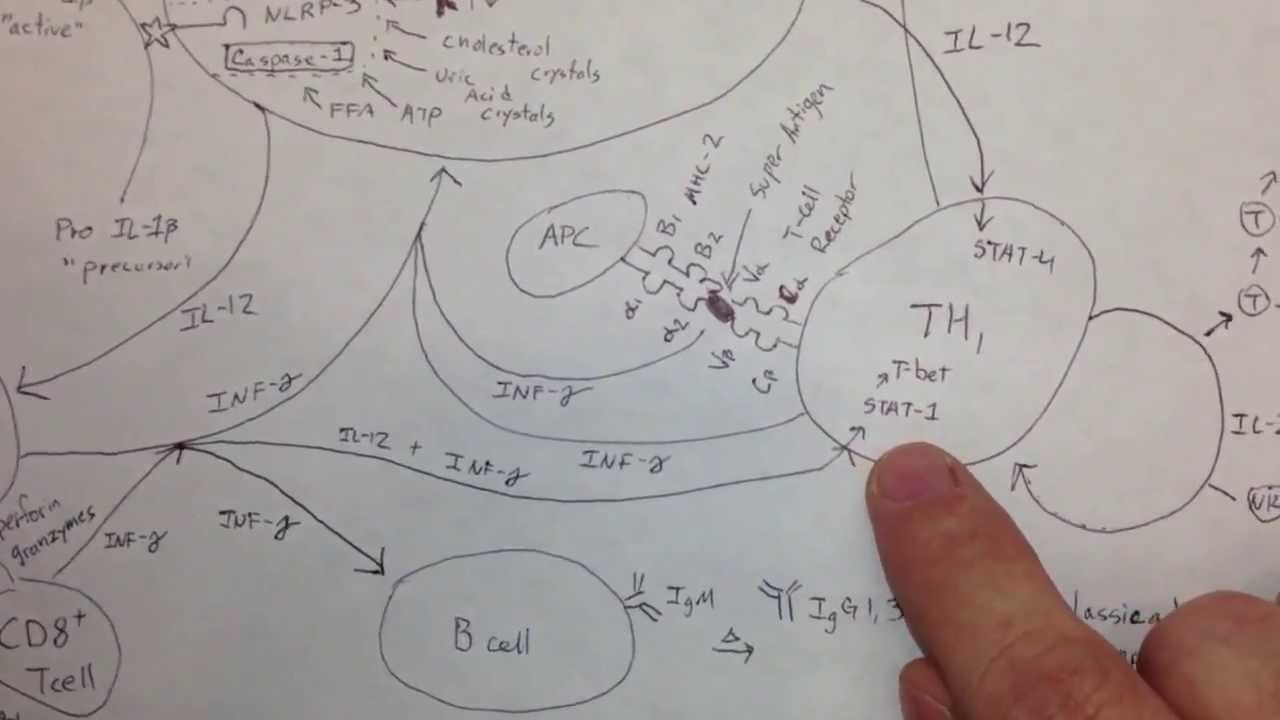 "active"
NLRP-3
Caspase-1
Cholesterol
crystals
Uric
Acid
crystals
FFA
ATP
IL-12
Pro IL-1β
"precursor"
IL-12
APC
B1
MHC-2
B2
α1
α2
Super Antigen
T-Cell
Receptor
Vα
Cα
Vβ
Cβ
STAT-4
TH1
T-bet
STAT-1
T
T
INF-γ
INF-γ
INF-γ
IL-12 + INF-γ
perform
granzymes
INF-γ
INF-γ
CD8+
Tcell
B cell
IgM
Δ
IgG1,3